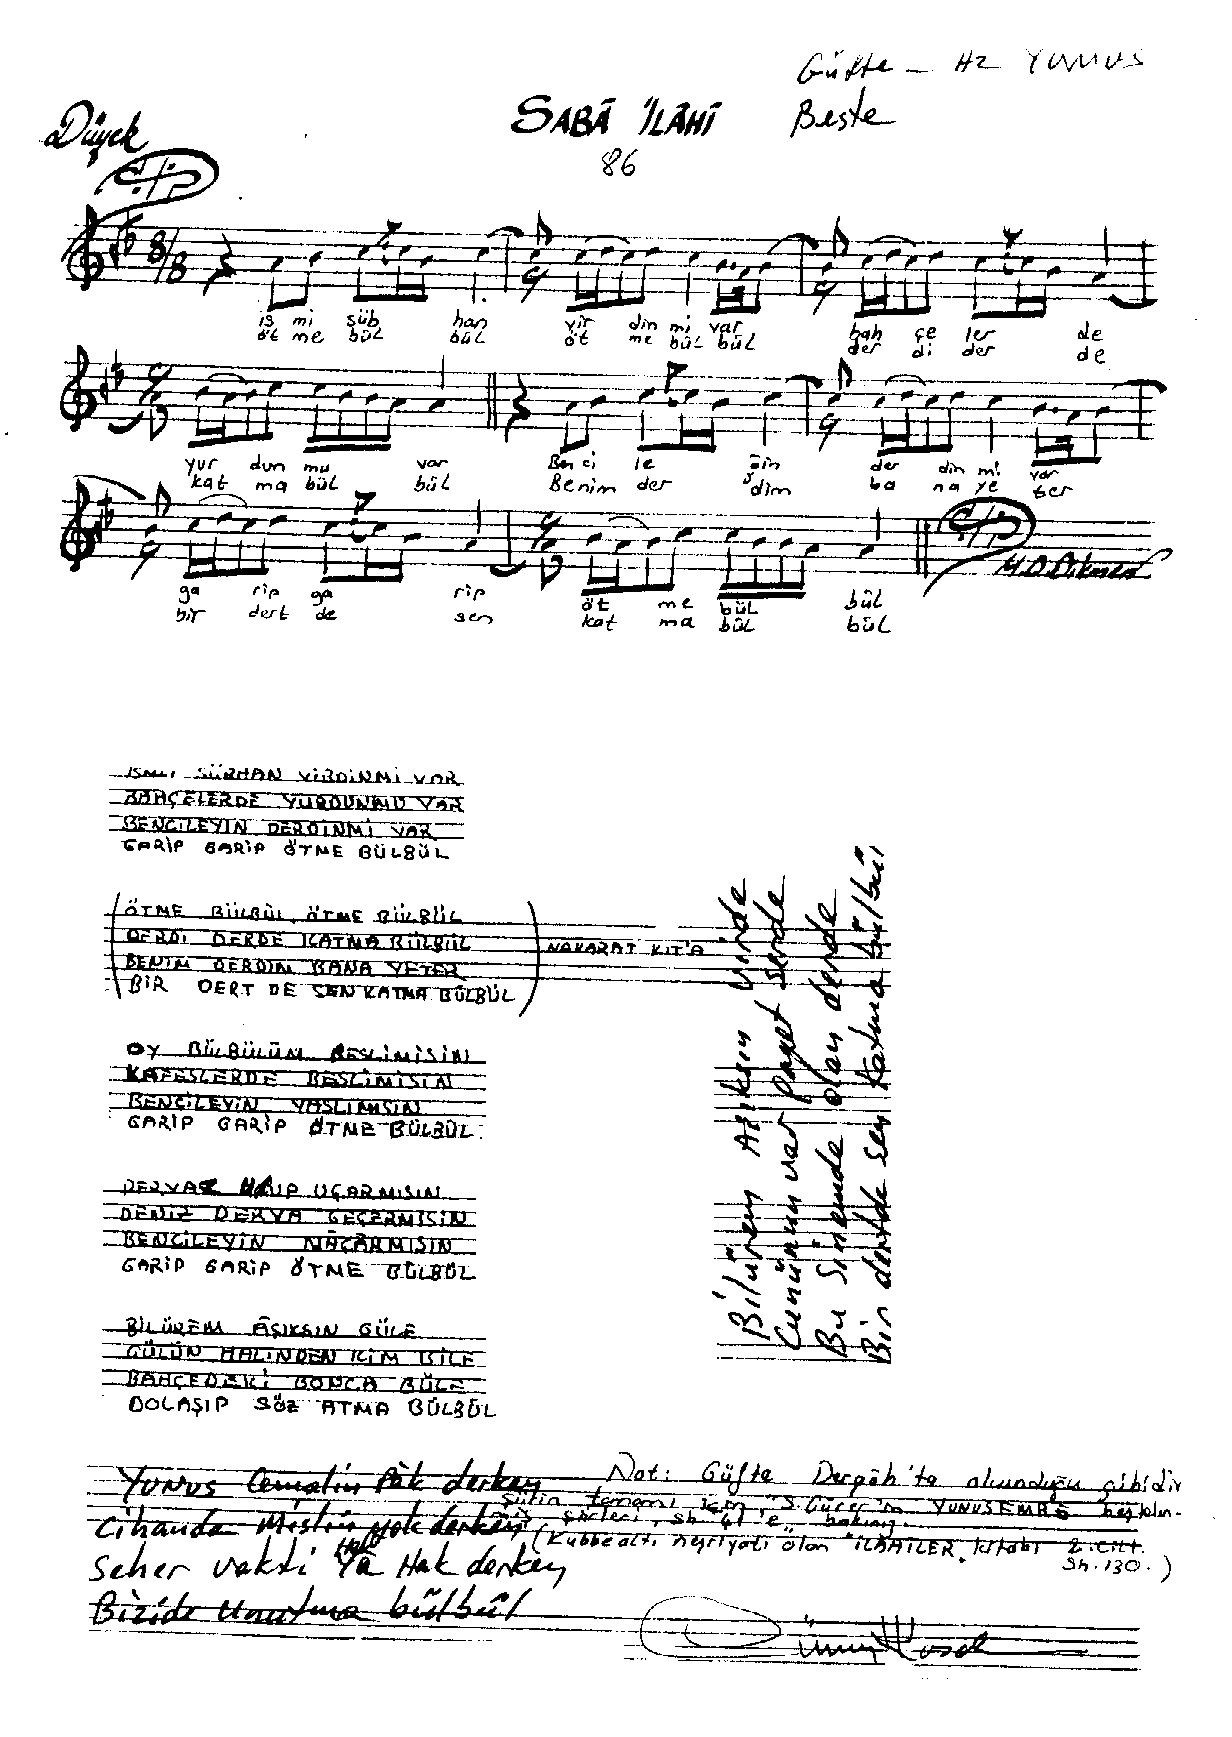 Güfte - Hz YUNUS
SABÂ İLÂHİ
Beste
Düyek
86
8/8
is mi süb han vir din mi var bah çe ler de
öt me bül bül öt me bül bül der di der de
yur dun mu var Ben ci le yin der din mi var
kat ma bül bül Benim der dim ba na ye ter
ga rip ga rip öt me bül bül
bir dert de sen kat ma bül bül
İSMİ SÜBHAN VİRDİNMİ VAR
BAHÇELERDE YURDUNMU VAR
BENCİLEYİN DERDİNMİ VAR
GARİP GARİP ÖTME BÜLBÜL
ÖTME BÜLBÜL ÖTME BÜLBÜL
DERDİ DERDE KATMA BÜLBÜL
NAKARAT KIT'A
BENİM DERDİM BANA YETER
BİR DERT DE SEN KATMA BÜLBÜL
OY BÜLBÜLÜM BESLİMİSİN
KAFESLERDE BESLİMİSİN
BENCİLEYİN YASLIMISIN
GARİP GARİP ÖTME BÜLBÜL
UÇARMISIN
DENİZ DERYA GEÇERMİSİN
BENCİLEYİN NÂÇÂRMISIN
GARİP GARİP ÖTME BÜLBÜL
BİLÜREM ÂŞIKSIN GÜLE
GÜLÜN HALİNDEN KİM BİLE
BAHÇEDEKİ GONCA GÜLE
DOLAŞIP SÖZ ATMA BÜLBÜL
Bilürem Aşıksın virde
Cününun var Payet serde
Bu Sinemde olan derde
Bir dertde sen katma bülbül
YUNUS Cemalin Pâk derken
Cihanda Mislin yok derken
Seher vakti Yâ Hak derken
Bizide Unutma bülbül
Not: Güfte Dergâh'ta okunduğu gibidir
YUNUS EMRE
(Kubbealtı neşriyatı olan "İLÂHİLER, kitabı 2. cilt.
Sh. 130.)